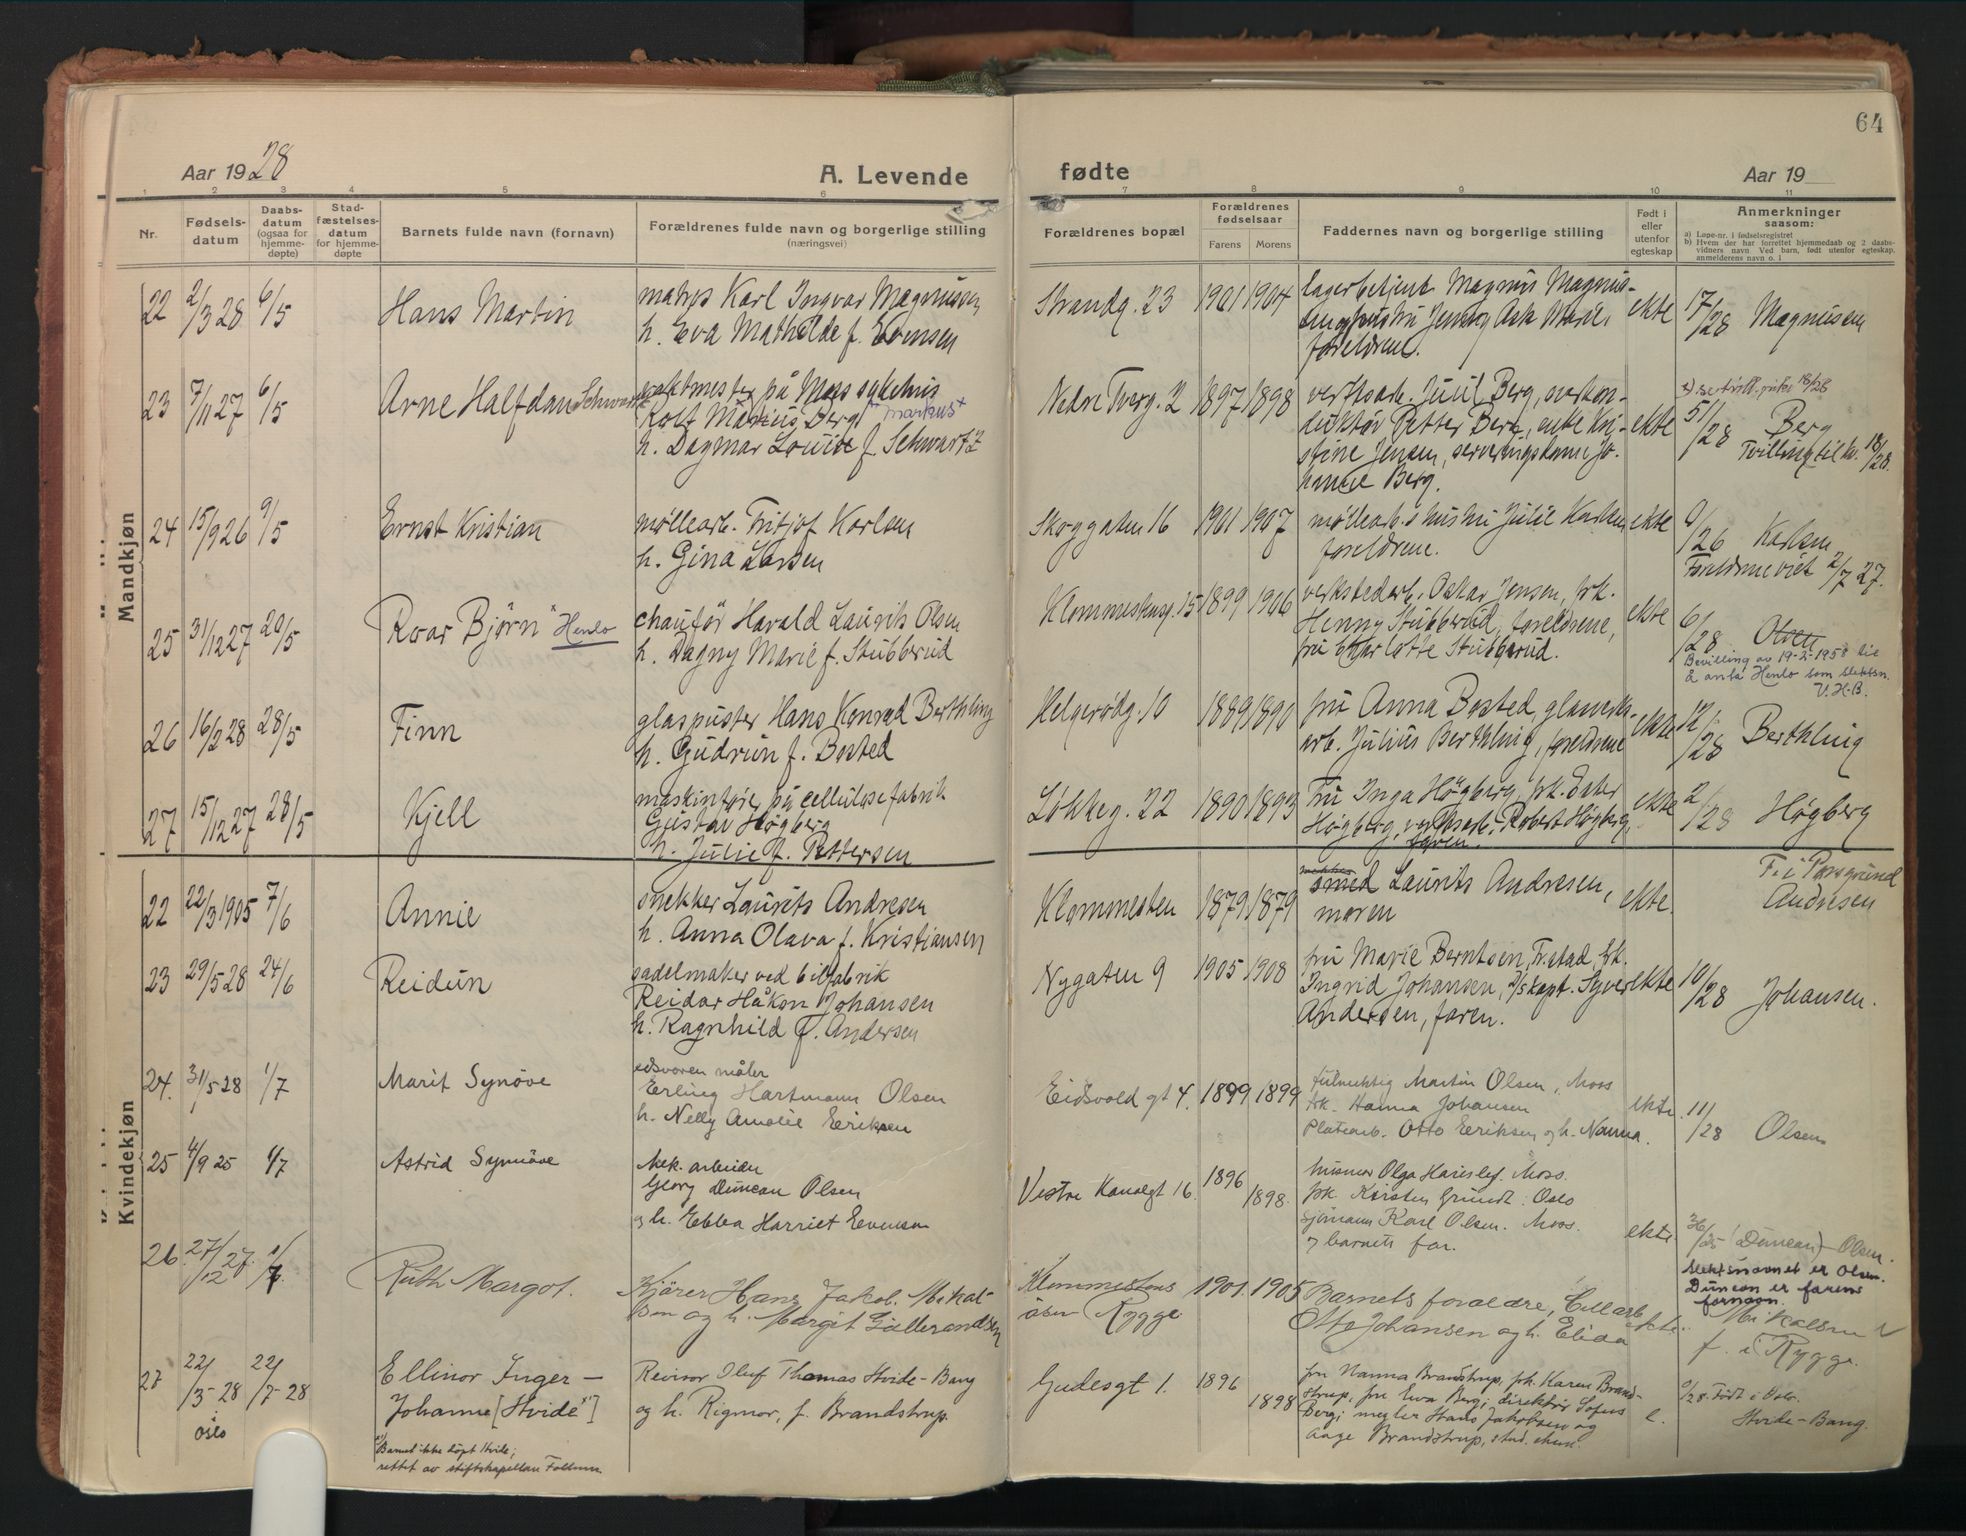 64
Aar 1928
A. Levende
fødte
Aar 19
1 2 3 4 5 6 7 8 9 10 11
Nr.
Fødselsdatum
Daabsdatum (ogsaa for hjemmedøpte)
Stadfæstelsesdatum for hjemmedøpte
Barnets fulde navn (fornavn)
Forældrenes fulde navn og borgerlige stilling (næringsvei)
Forældrenes bopæl
Forældrenes fødselsaar
Farens
Morens
Faddernes navn og borgerlige stilling
Født i eller utenfor egteskap
Anmerkninger saasom:
a) Løpe-nr. i fødselsregistret
b) Hvem der har forrettet hjemmedaab og 2 daabsvidners navn. Ved barn, født utenfor egteskap, anmelderens navn o. l
Mandkjøn
22 2/3 28 6/5 Hans Martin
matros Karl Ingvar Magnusen
h. Eva Mathilde f. Evensen
Strandg. 23 1901 1904
lagerbetjent Magnus Magnus-
foreldrene.
ekte 17/28 Magnusen
23 7/11 27 6/5 Arne Halfdan Schwartz
vaktmester på Moss sykehus
Rolf Marius Berg + markus +
h. Dagmar Louise f. Schwartz
Nedre Tverg. 2 1897 1898
verksarb. Juul Berg, overkon-
duktør Petter Berg, enke Kri-
stine Jensen, serveringsdame Jo-
hanne Berg.
ekte 51/28 Berg
Tvilling til nr. 18/28.
24 15/9 26 9/5 Ernst Kristian
møllearb. Fritjof Karlsen
h. Gina Larsen
Skoggaten 16 1901 1907
møllearb.s hustru Julie Karlsen
foreldrene.
ekte 9/26 Karlsen
Foreldrene viet 2/7 27.
25 31/12 27 20/5 Roar Bjørn "Henlo
chauffør Harald Laurits Olsen
h. Dagny Marie f. Stubberud
Klommestensg. 15 1899 1906
verkstedarb. Oskar Jensen, frk.
Henny Stubberud, foreldrene,
fru Charlotte Stubberud.
ekte 6/28 Olsen
Bevilling av 19-2-1958 til
å anta Henlo som slektsn.
V.H.B.
26 16/2 28 28/5 Finn
glaspuster Hans Konrad Berthling
h. Gudrun f. Bosted
Helgerødg. 10 1889 1890
fru Anna Bosted, glasverks-
arb. Julius Berthling, foreldrene
ekte 12/28 Berthling
27 15/12 27 28/5 Kjell
maskinfører på cellulosefabrik
Gustav Høgberg
h. Julie f. Pettersen
Løkkeg. 22 1890 1893
Fru Inga Høgberg, frk. Ester
Høgberg, verksarb. Robert Høgberg,
faren.
ekte 2/28 Høgberg
Kvindekjøn
22 22/3 1905 7/6 Annie
snekker Laurits Andresen
h. Anna Olava f. Kristiansen
Klommesten 1879 1879
smed Laurits Andresen,
moren
ekte.
F. i Porsgrund
Andresen
23 29/5 28 24/6 Reidun
sadelmaker ved bilfabrik
Reidar Håkon Johansen
h. Ragnhild f. Andersen
Nygaten 9 1905 1908
fru Marie Berntsen, Fr.stad, frk.
Ingrid Johansen, D/skapt. Syver
Andersen, faren.
ekte 10/28 Johansen.
24. 31/5 28 1/7 Marit Synöve
edsvoren måler
Erling Hartmann Olsen
h. Nelly Amalie Eriksen
Eidsvold gt 4. 1899 1899
fulmektig Martin Olsen, Moss
frk. Hanna Johansen
Platearb. Otto Eriksen og h. Nanna.
ekte. 11/28 Olsen
25 4/9 25 1/7 Astrid Synnöve
Mek. arbeider
Georg Duncan Olsen
og h. Ebba Harriet Evensen
Vestre Kanalgt 16. 1896 1898.
husmor Olga Harislef. Moss.
frk. Kirsten Grundt. Oslo
Sjömann Karl Olsen. Moss.
og barnets far.
ekte. 36/25 (Duncan) - Olsen.
Slektsnavnet er Olsen.
Duncan er farens
fornavn.
26. 27/12 27. 1/7. Ruth Margot.
Kjører Hans Jakob Mikal-
sen og h. Margit Gullerandsen
Klommestens
åsen Rygge 1901. 1905
Barnets foraldre, Cell.arb.
Otto Johansen og h. Elida
ekte. Mikalsen
f. i Rygge.
27 22/3-28 i Oslo 22/7-28 Ellinor Inger-
Johanne [Hvide x)]
x) Barnet ikke døpt Hvide;
rettet av stiftskapellan Follum
Revisor Oluf Thomas Hvide-Bang
og h. Rigmor, f. Brandstrup.
Gudesgt 1. 1896 1898
fru Nanna Brandstrup, frk. Karen Brand-
strup, fru Ewa Berg; direktör Sofus
Berg; megler Hans Jakobsen og
Aage Brandstrup, stud. chem.
e. 0/28. Født i Oslo.
Hvide-Bang.